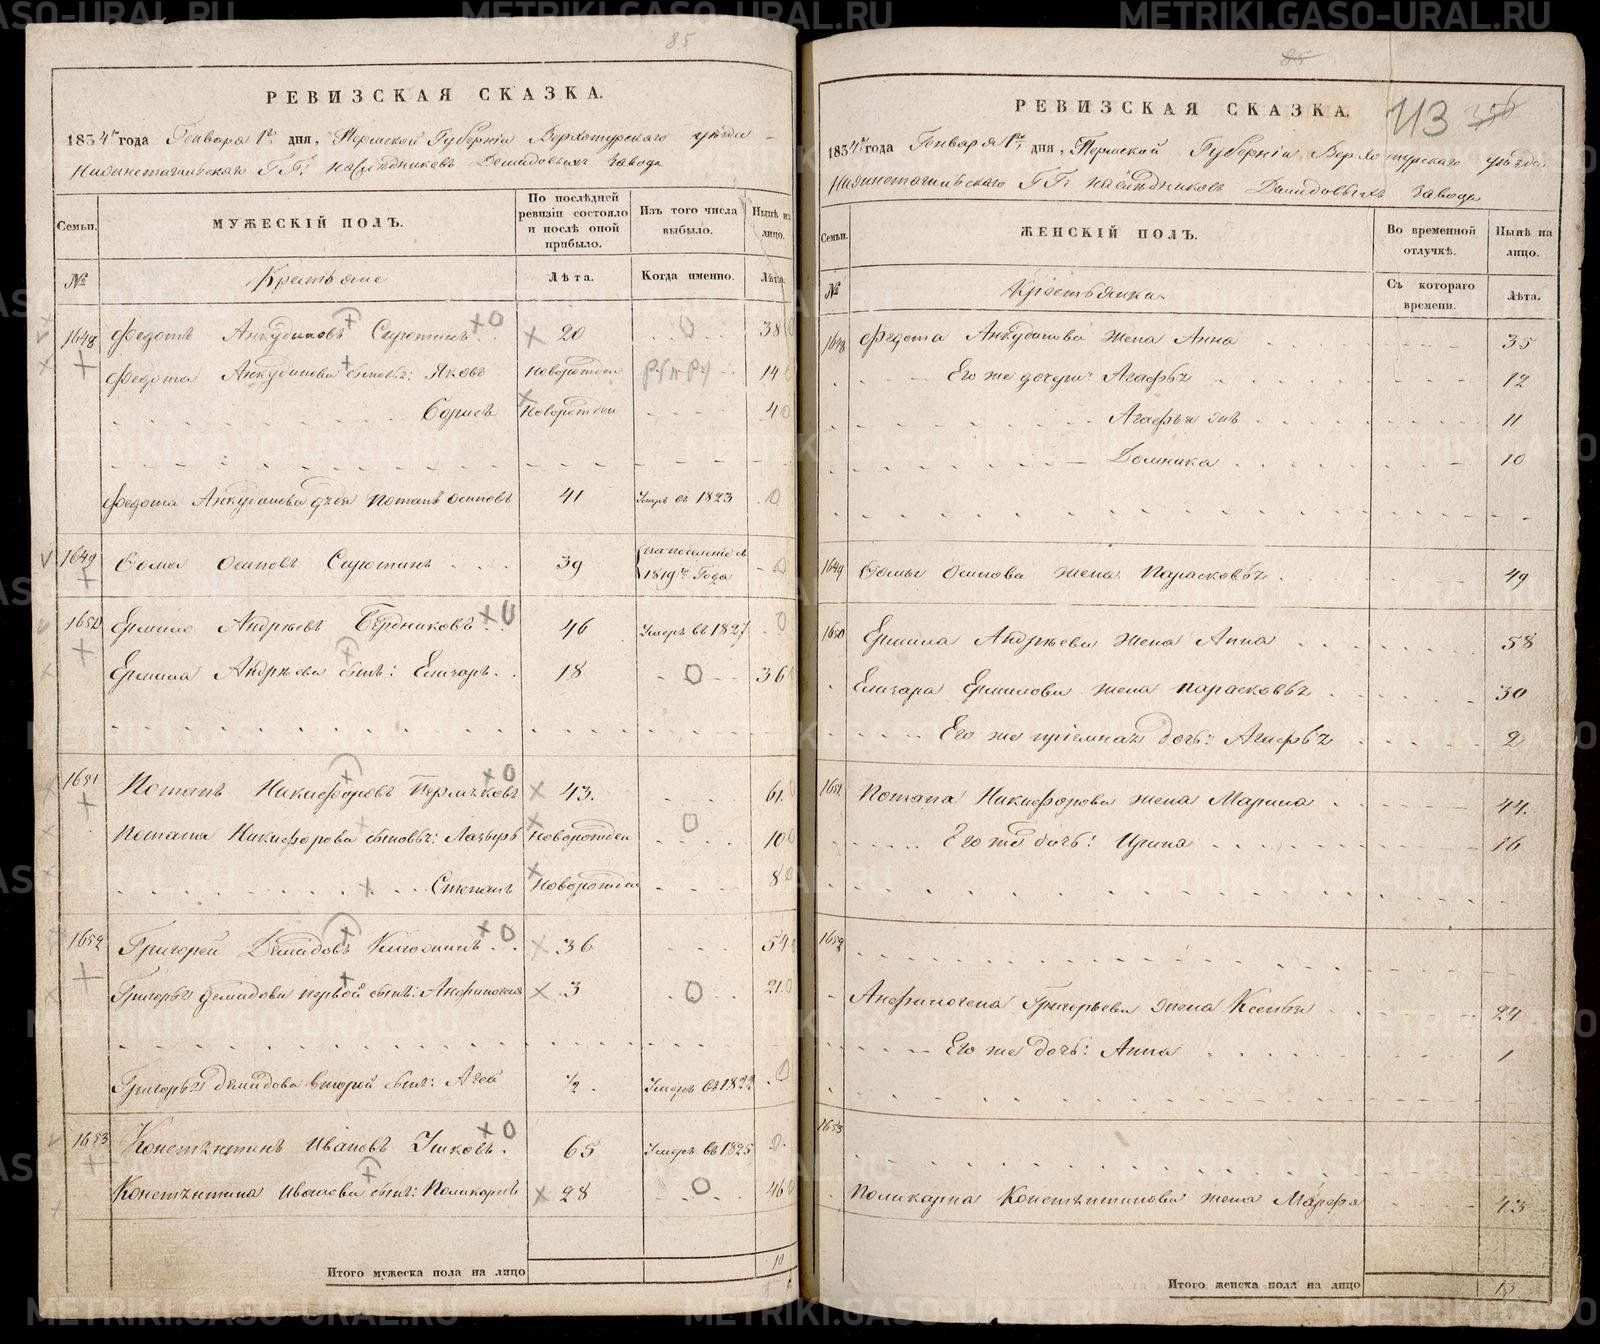 85
РЕВИЗСКАЯ СКАЗКА.
1834го года Генваря 1го дня, Пермской Губерніи Верхотурского уѣзда
Нижнетагильского Г.Г. наслѣдниковъ Демидовыхъ завода
Семьи. МУЖЕСКІЙ ПОЛЪ. По послѣдней ревизіи состояло и послѣ оной прибыло. Изъ того числа выбыло. Нынѣ на лицо.
№ Крестьяне Лѣта. Когда именно. Лѣта.
1648 Федотъ Анкудиновъ Сиротинъ 20 0 38
Федота Анкудинова сыновья: Яковъ Новорожден 14
Борисъ Новорожден 4
Федота Анкудинова дядя Потапъ Осиповъ 41 Умеръ въ 1823 0
1649 Фома Осиповъ Сиротинъ 39 на поселеніе въ 1819м года 0
1650 Ермило Андрѣевъ Бердниковъ 46 Умеръ въ 1827 0
Ермила Андрѣева сынъ: Елизаръ 18 0 36
1651 Потапъ Никифоровъ Пермяковъ 43. 61
Потапа Никифорова сыновья: Лазырь Новорожден 0 10
Степанъ Новорожден 8
1652 Григорей Демидовъ 36 54
Григорья Демидова первой сынъ: Анфиногенъ 3 0 21
Григорья Демидова второй сынъ: Агей 1/2 Умеръ въ 1822 0
1653 Констянтинъ Ивановъ Ушковъ 65 Умеръ въ 1825 0
Констянтина Иванова сынъ: Поликарпъ 28 0 46
Итого мужеска пола на лицо 10
85
РЕВИЗСКАЯ СКАЗКА. 113 356
1834го года Генваря 1го дня, Пермской Губерніи Верхотурского уѣзда
Нижнетагильского Г.Г. наслѣдниковъ Демидовыхъ завода
Семьи. ЖЕНСКІЙ ПОЛЪ. Во временной отлучкѣ. Нынѣ на лицо.
№ Крестьянки Съ котораго времени. Лѣта.
1648 Федота Анкудинова жена Анна 35
Его же дочери: Агафья 12
Агафья же 11
Домника 10
1649 Фомы Осипова жена Парасковья 49
1650 Ермила Андрѣева жена Анна 58
Елизара Ермилова жена Парасковья 30
Его же пріемная дочь: Агафья 2
1651 Потапа Никифорова жена Марина 44.
Его же дочь: Ирина 16
1652
Анфиногена Григорьева жена Ксенья 24
Его же дочь: Анна 1
1653
Поликарпа Констянтинова жена Марфа 43
Итого женска пола на лицо 13
METRIKI.GASO-URAL.RU